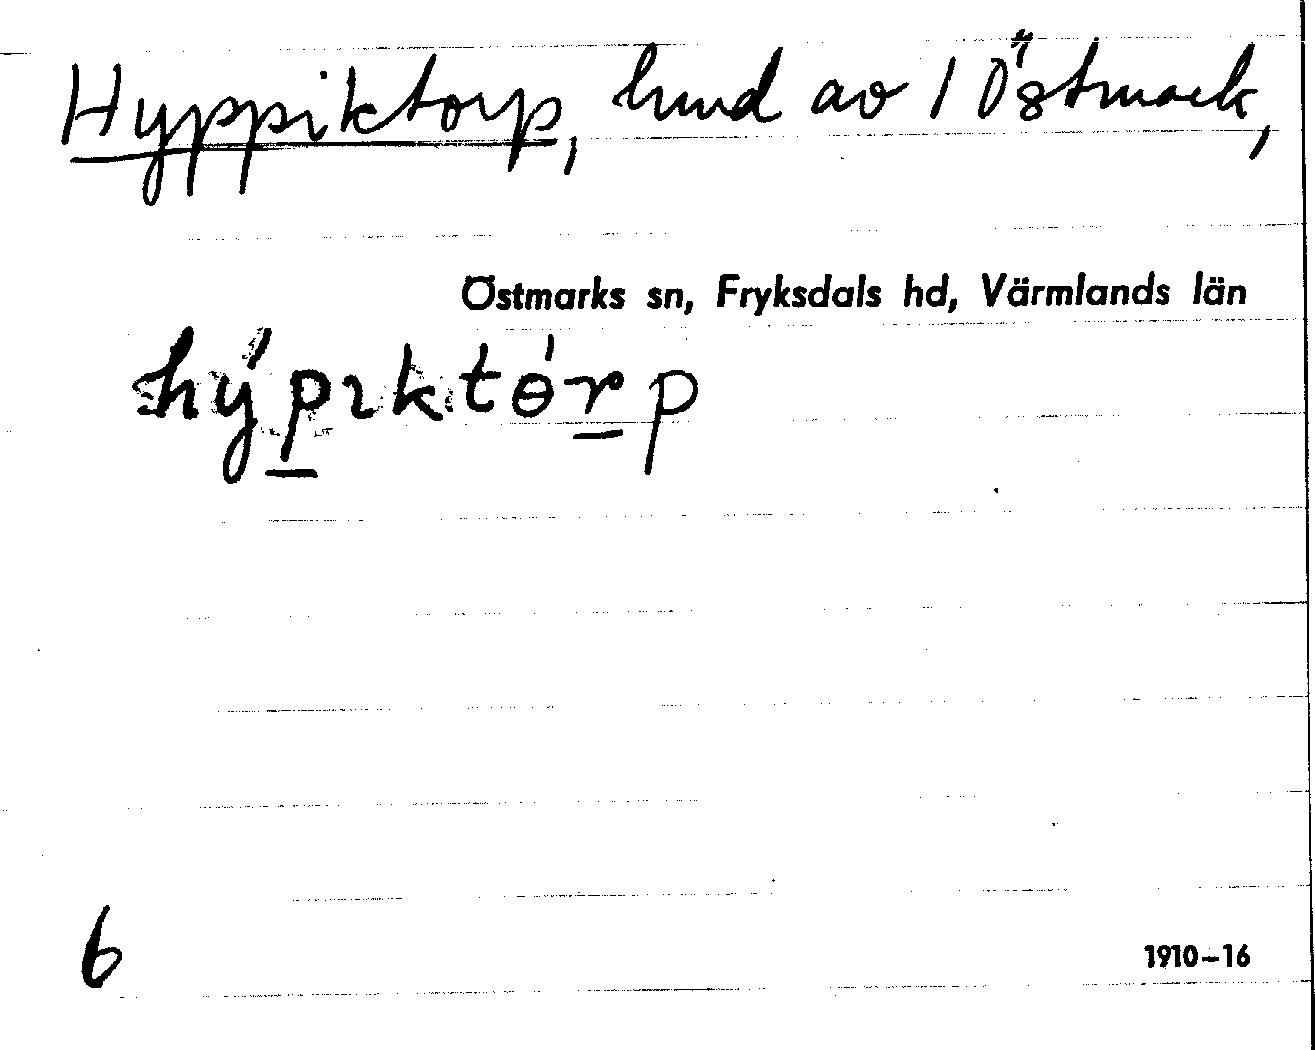 Hyppiktorp, lund av 1 Östmark,
Östmarks sn, Fryksdals hd, Värmlands län
hýpıktɵ́rp
6
1910–16